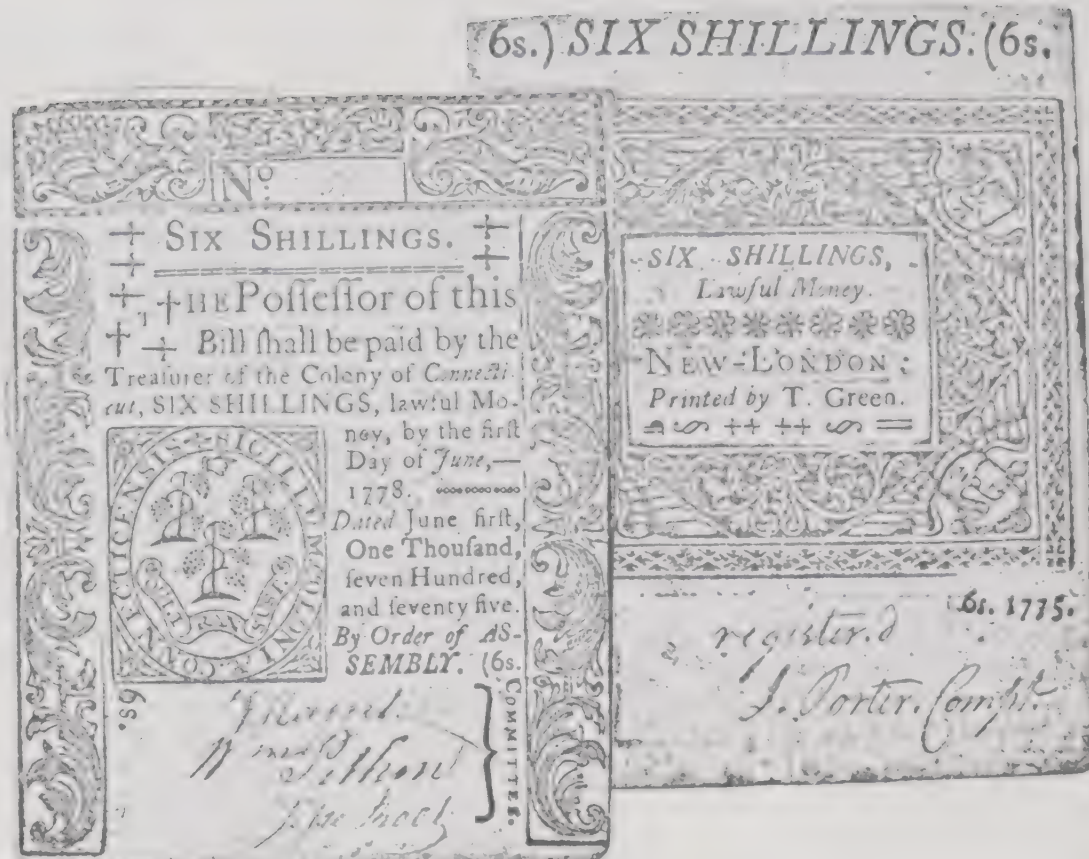 6s.) SIX SHILLINGS. (6s.
No.
SIX SHILLINGS.
THE Poſſeſſor of this
Bill ſhall be paid by the
Treaſurer of the Colony of Connecti-
cut, SIX SHILLINGS, lawful Mo-
ney, by the firſt
Day of June,—
1778.
Dated June firſt,
One Thouſand,
ſeven Hundred,
and ſeventy five.
By Order of AS-
SEMBLY. (6s.
SIGILLUM COLONIÆ CONNECTICENSIS
6s.
Wm Pitkin
COMMITTEE.
SIX SHILLINGS,
Lawful Money.
NEW-LONDON:
Printed by T. Green.
6s. 1775.
register.d
J. Porter. Compt.